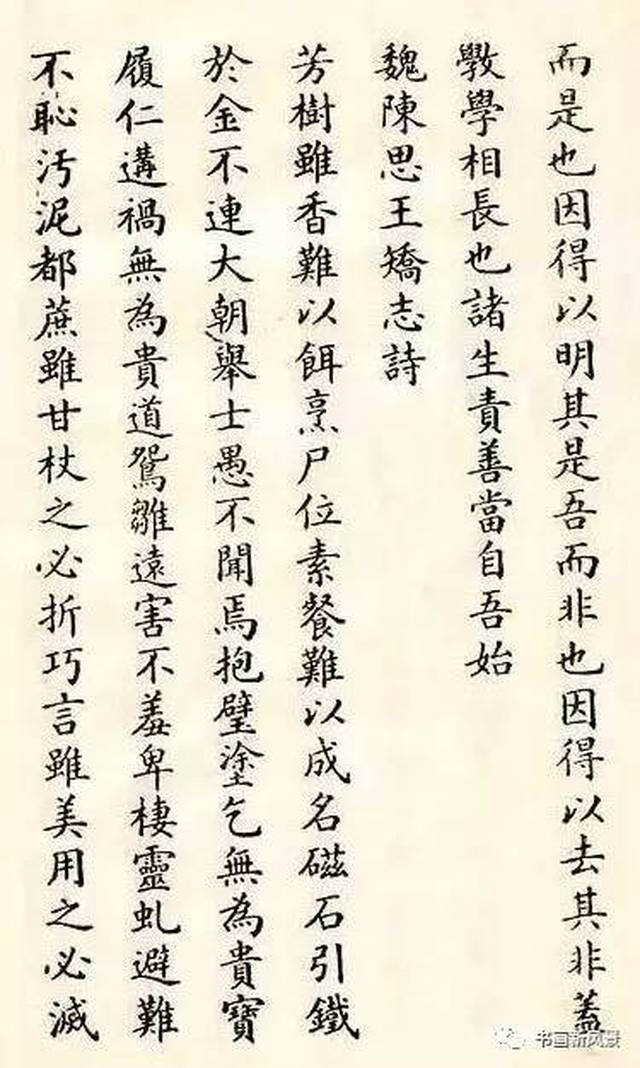 而是也因得以明其是吾而非也因得以去其非蓋
敎學相長也諸生責善當自吾始
魏陳思王矯志詩
芳樹雖香難以餌烹尸位素餐難以成名磁石引鐵
於金不連大朝舉士愚不聞焉抱璧塗乞無為貴寶
履仁遘禍無為貴道鴛雛遠害不羞卑棲靈虬避難
不恥汚泥都蔗雖甘杖之必折巧言雖美用之必滅
书画新风景